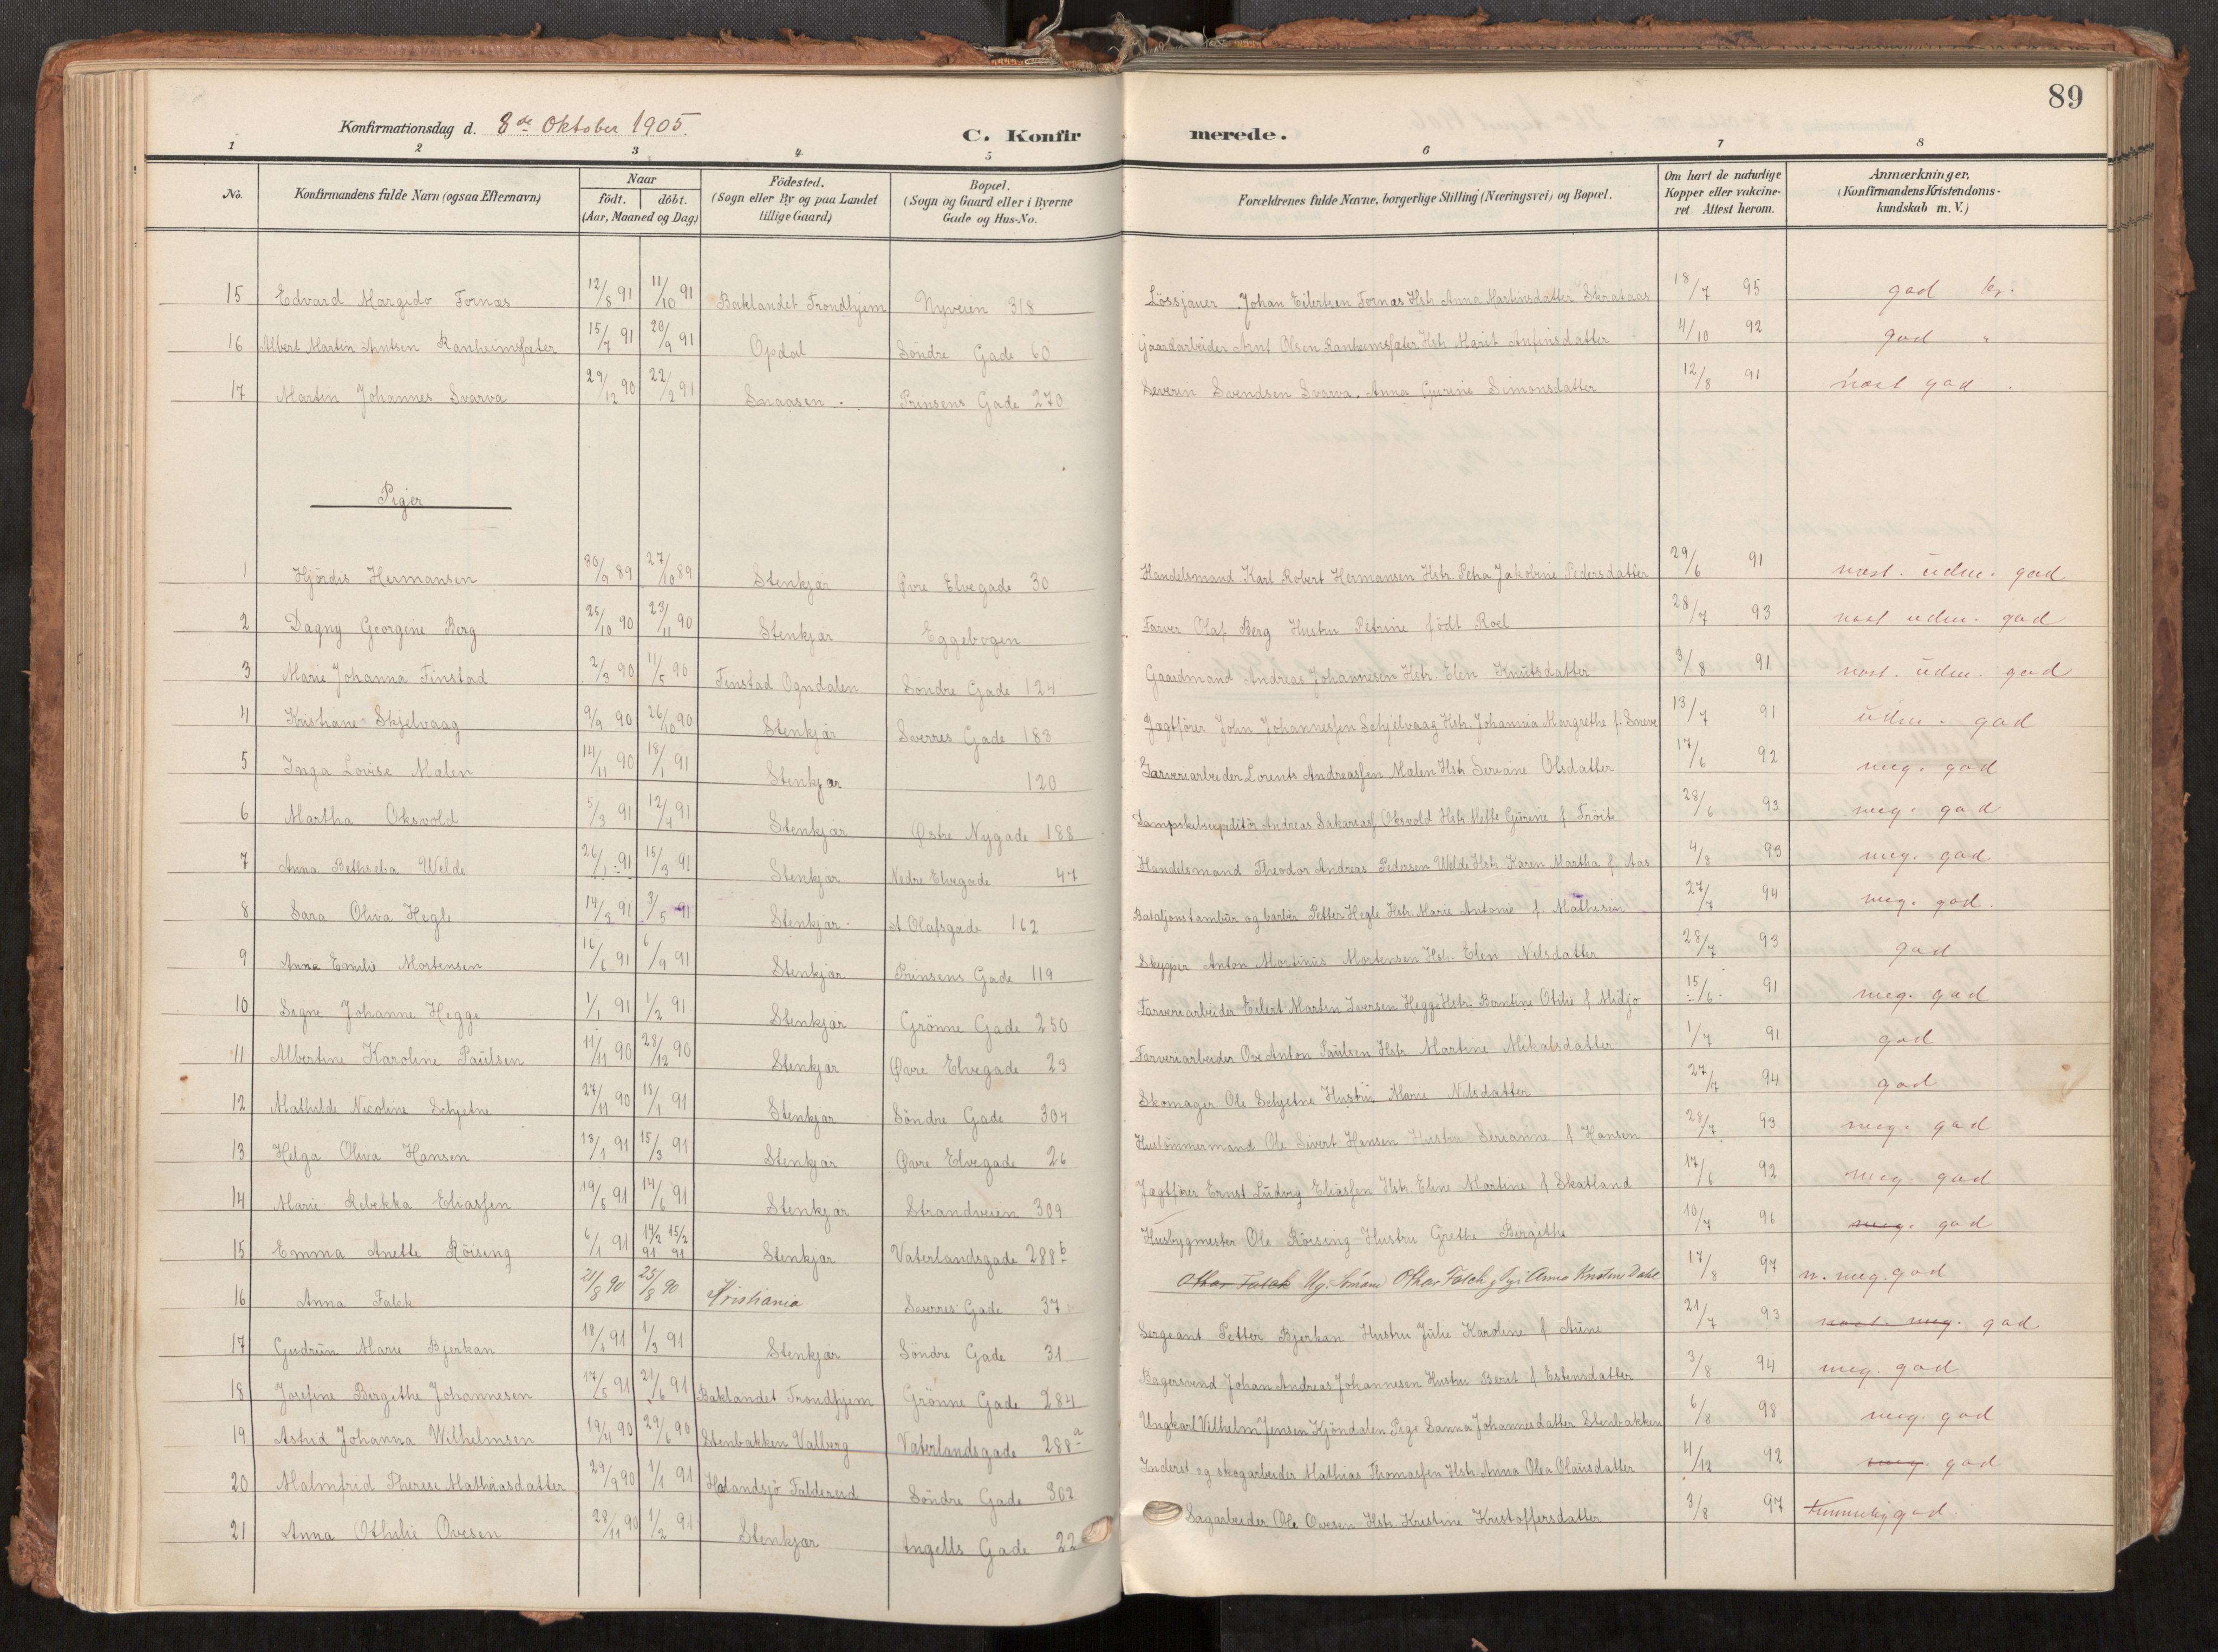 89
Konfirmationsdag d. 8de Oktober 1905. C. Konfirmerede.
1 2 3 4 5 6 7 8
No. Konfirmandens fulde Navn (ogsaa Efternavn) Naar födt. döbt. (Aar, Maaned og Dag) Födested. (Sogn eller By og paa Landet tillige Gaard) Bopæl. (Sogn og Gaard eller i Byerne Gade og Hus-No. Forældrenes fulde Navne, borgerlige Stilling (Næringsvei) og Bopæl. Om havt de naturlige Kopper eller vakcineret. Attest herom. Anmærkninger, (Konfirmandens Kristendomskundskab m. V.)
15 Edvard Margido Fornæs 12/8 91 11/10 91 Baklandet Trondhjem Nyveien 318 Lössjauer Johan Eilertsen Fornæs Hstr Anna Martinsdatter 18/7 95 god
16 Albert Martin Arntsen Ranheimsæter 15/7 91 20/9 91 Opdal Söndre Gade 60 Gaardarbeider Arnt Olsen Ranheimsæter Hstr Marit Anfinsdatter 4/10 92 god "
17 Martin Johannes Svarva 29/12 90 22/2 91 Snaasen Prinsens Gade 270 Severin Svendsen Svarva. Anna Gurine Simonsdatter 12/8 91 næst god
Piger
1 Hjördis Hermansen 30/9 89 27/10 89 Stenkjær Øvre Elvegade 30 Handelsmand Karl Robert Hermansen Hstr Petra Jakobine Pedersdatter 29/6 91 næst. udm. god
2 Dagny Georgine Berg 25/10 90 23/11 90 Stenkjær Eggebogen Farver Olaf Berg Hustru Petrine födt Roel 28/7 93 næst udm. god
3 Marie Johanna Finstad 2/3 90 11/5 90 Finstad Ogndalen Söndre Gade 124 Gaardmand Andreas Johannesen Hstr. Elen Knutsdatter 3/8 91 næst. udm. god
4 Kristiane Skjelvaag 9/9 90 26/10 90 Stenkjær Sverres Gade 183 Jagtförer John Johannesen Schjelvaag Hstr. Johanna Margrethe f. Sneve 13/7 91 udm. god
5 Inga Lovise Malen 14/11 90 18/1 91 Stenkjær 120 Garveriarbeider Lorents Andreassen Malen Hstr Seriane Olsdatter 17/6 92 meg. god
6 Martha Oksvold 5/3 91 12/4 91 Stenkjær Østre Nygade 188 Dampskibsexpeditör Andreas Oksvold Hstr Mette Gurine f 28/6 93 meg. god
7 Anna Bethselia Welde 26/1 91 15/3 91 Stenkjær Nedre Elvegade 47 Handelsmand Theodor Andreas Pedersen Welde Hstr Karen Martha f. Aas 4/8 93 meg. god
8 Sara Oliva Hegle 14/3 91 3/5 91 Stenkjær St Olafsgade 162 Bataljonstambur og barbér Petter Hegle Hstr Marie Antonie f. Mathesen 27/7 94 meg. god.
9 Anna Emilie Mortensen 16/6 91 6/9 91 Stenkjær Prinsens Gade 119 Skypper Anton Martinus Mortensen Hstr. Elen Nilsdatter 28/7 93 god
10 Signe Johanne Hegge 1/1 91 1/2 91 Stenkjær Grönne Gade 250 Farveriarbeider Eilert Martin Iversen Hegge Hstr. Berntine Otilie f Midjo 15/6 91 meg. god
11 Albertine Karoline Paulsen 11/11 90 28/12 90 Stenkjær Øvre Elvegade 23 Farveriarbeider Ove Anton Paulsen Hstr Martine Mikalsdatter 1/7 91 god
12 Mathilde Nicoline Schjetne 27/11 90 18/1 91 Stenkjær Söndre Gade 304 Skomager Ole Schjetne Hustru Marie Nilsdatter 27/7 94 god
13 Helga Oliva Hansen 13/1 91 15/3 91 Stenkjær Øvre Elvegade 26 Hustömmermand Ole Sivert Hansen Hustru Serianne f Hansen 28/7 93 meg. god
14 Marie Rebekka Eliassen 19/5 91 14/6 91 Stenkjær Strandveien 309 Jagtförer Ernst Ludvig Eliassen Hstr Eline Martine f Skatland 17/6 92 meg. god
15 Emma Anette Röising 6/1 91 14/2 91 15/2 91 Stenkjær Vaterlandsgade 288b Husbygmester Ole Röising Hustru Grethe Birgithe 10/7 96 meg. god
16 Anna Falck 21/8 90 25/8 90 Kristiania Sverres Gade 37 Othar Falck Ug. Sömand Othar Falck, Pige Anna Kristine Dahl 17/8 97 n. meg. god
17 Gudrun Marie Bjerkan 18/1 91 1/3 91 Stenkjær Söndre Gade 31 Sergeant Petter Bjerkan Hustru Julie Karoline f Aune 21/7 93 næst. meg. god
18 Josefine Bergithe Johannesen 17/5 91 21/6 91 Baklandet Trondhjem Grönne Gade 284 Bagersvend Johan Andreas Johannesen Hustru Berit f Estensdatter 3/8 94 meg. god
19 Astrid Johanna Wilhelmsen 19/4 90 29/6 90 Stenbakken Valberg Vaterlandsgade 288a Ungkarl Vilhelm Jensen Kjöndalen Pige Sanna Johannesdatter Stenbakken 6/8 98 meg. god
20 Malmfrid Therese Mathiasdatter 29/9 90 1/1 91 Halandsjö Faldereid Söndre Gade 302 Inderst og skogarbeider Mathias Thomassen Hstr Anna Olea Olausdatter 4/12 92 meg. god
21 Anna Othilie Ovesen 28/11 90 1/2 91 Stenkjær Angells Gade 22 Sagarbeider Ole Ovesen Hstr Kristine Kristoffersdatter 3/8 97 temmelig god